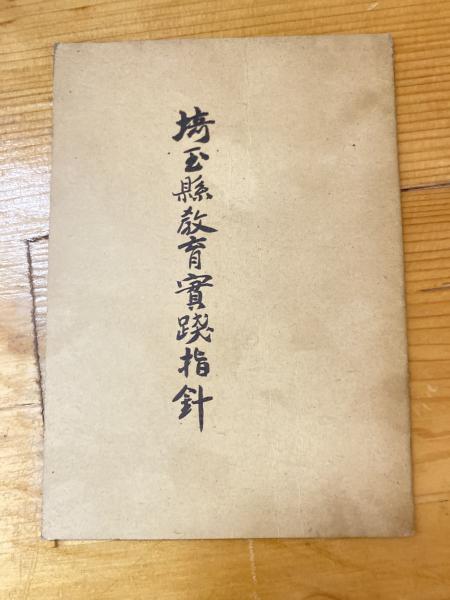 埼玉縣教育實踐指針